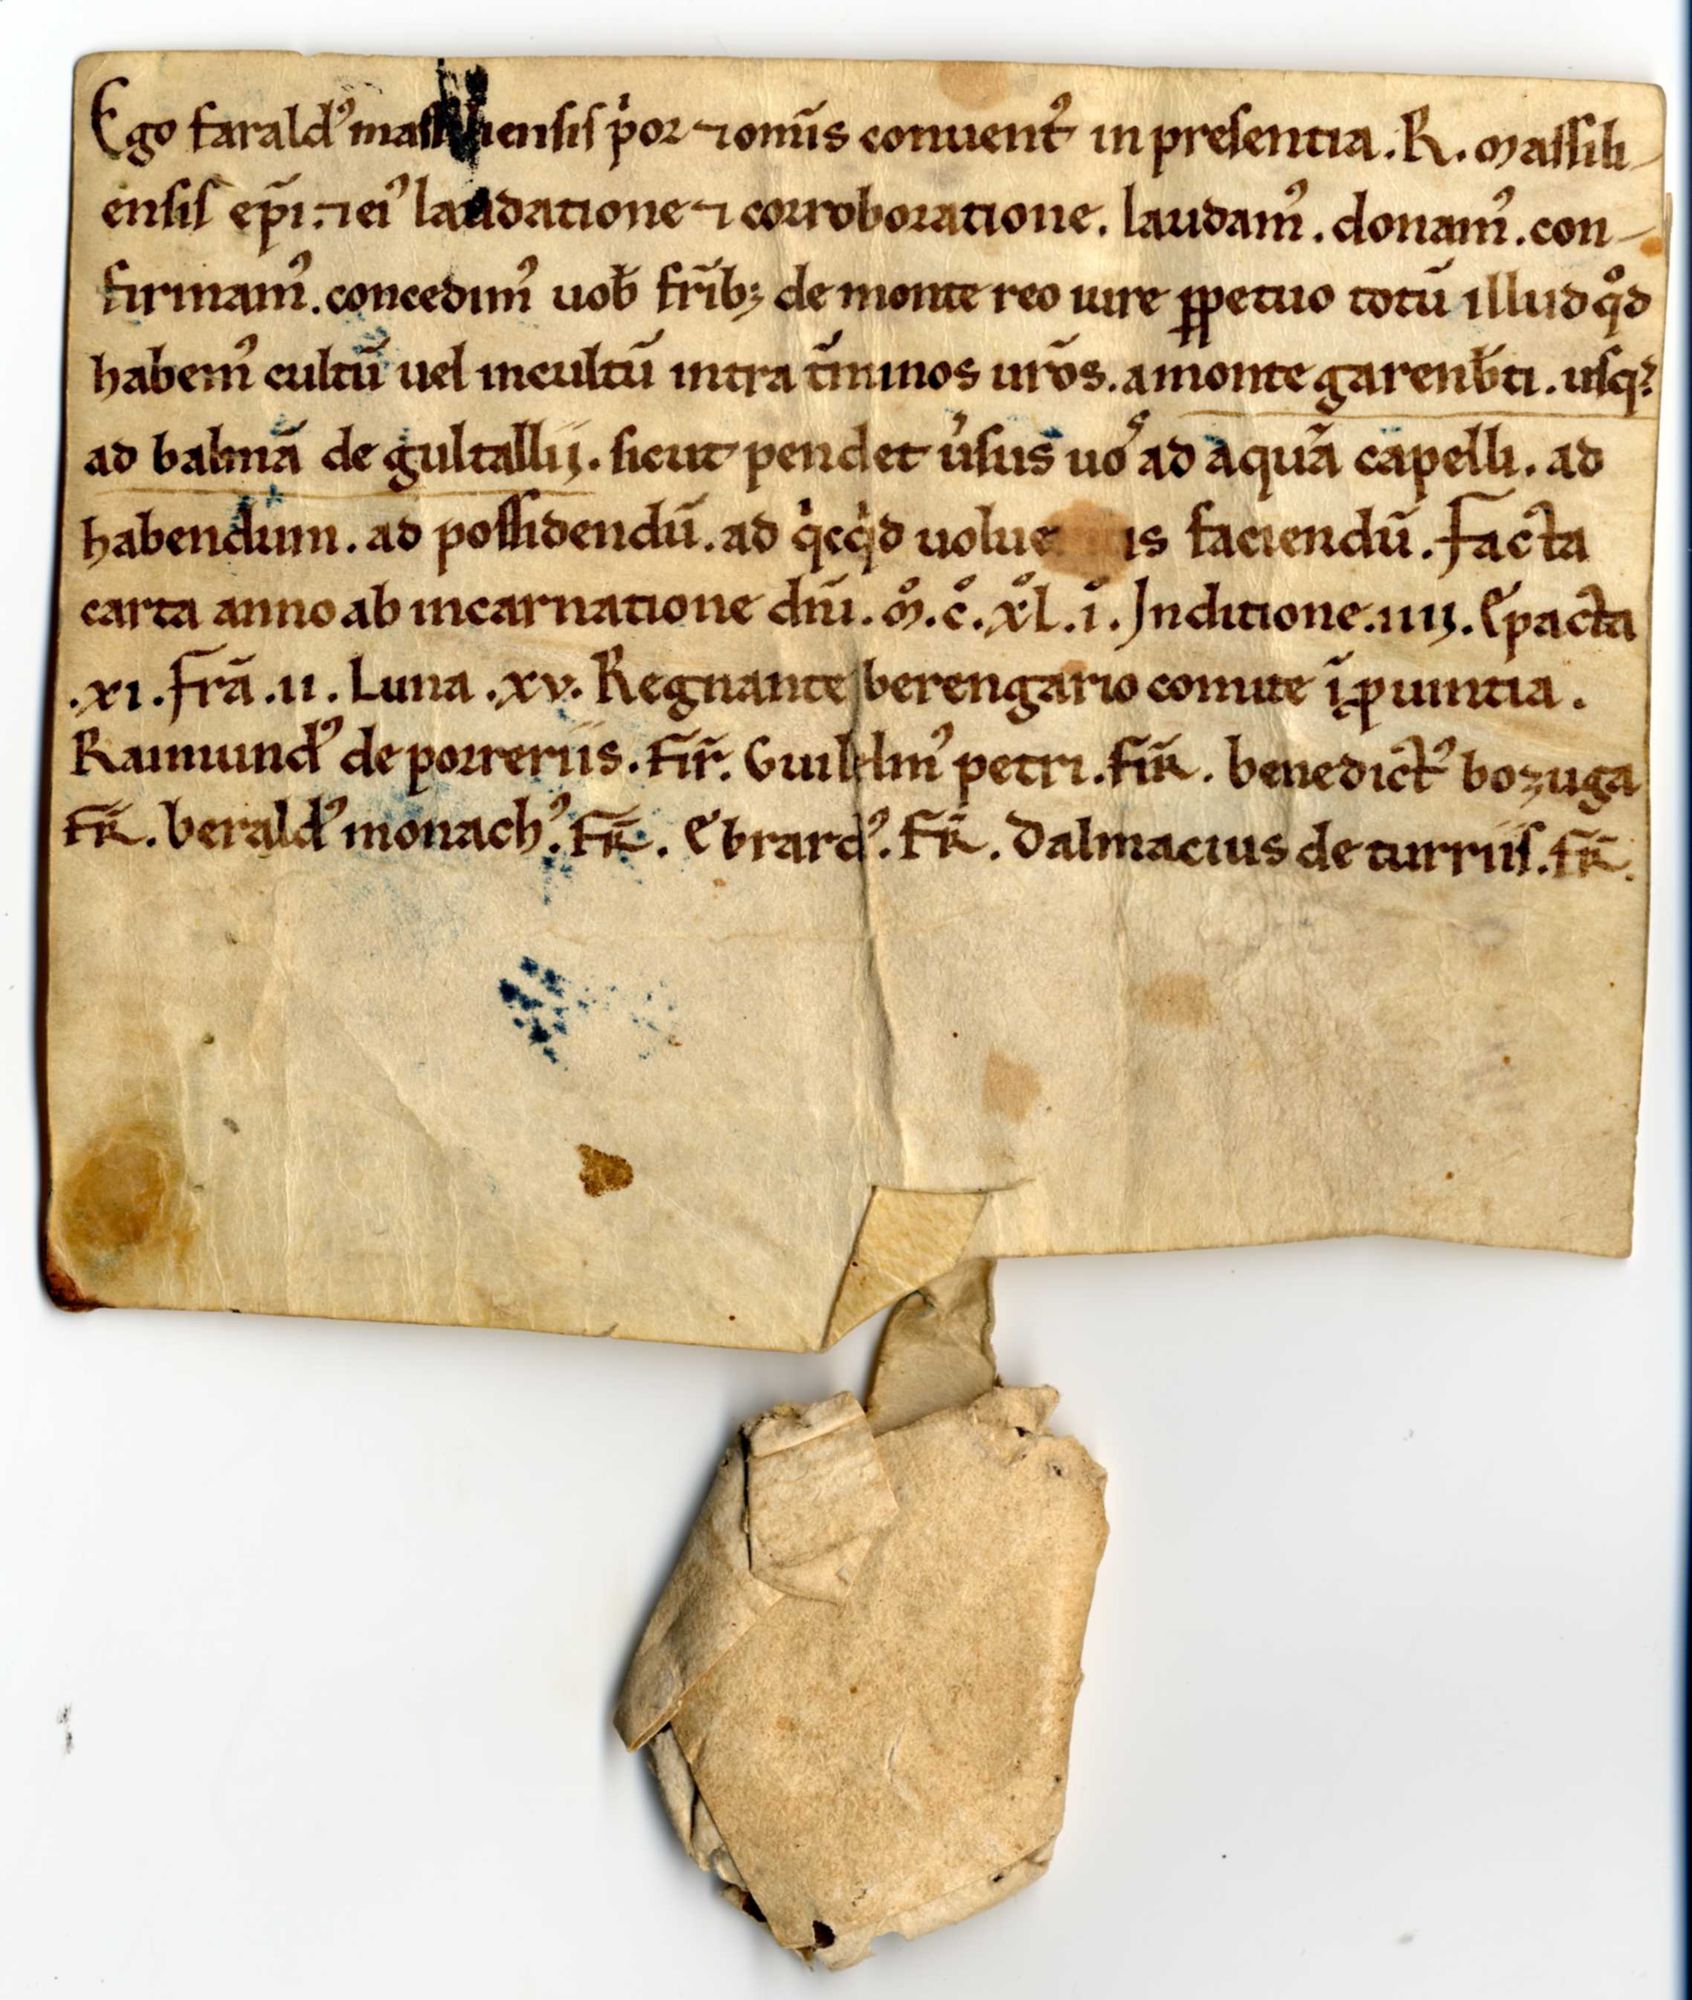 Ego faraldꝰ massiliensis p̾or ⁊ om̄is conuentꝰ in presentia . R . Massili-
ensis ep̄i . ⁊ eiꝰ laudatione ⁊ corroboratione . laudamꝰ . donamꝰ . con-
firmamꝰ . concedimꝰ uob̄ fr̄ibꝫ de monte reo iure ꝑpetuo totū illud qͦd
habemꝰ cultū uel incultū intra t̄minos ur̄os . a monte garenb̄ti . usqꝫ
ad balmā de gultallij . sicut pendet u̾sus uoꝰ ad aquā capelli . ad
habendum . ad possidendū . ad qͥcqͥd faciendū . Facta
carta anno ab incarnatione dn̄i . Mͦ . cͦ . xͦl . iͦ . Inditione . iiij . Epacta
. xi . Fr̄a . ii . Luna . xv . Regnante berengario comite ī ꝓuintia .
Raimundꝰ de porreriis . Fir̄ . Guilelmꝰ petri . Fir̄ . benedictꝰ bozuga
Fir̄ . beraldꝰ monachꝰ . Fir̄ . Ebrardꝰ . Fir̄ . Dalmacius de turriis . Fir̄ .